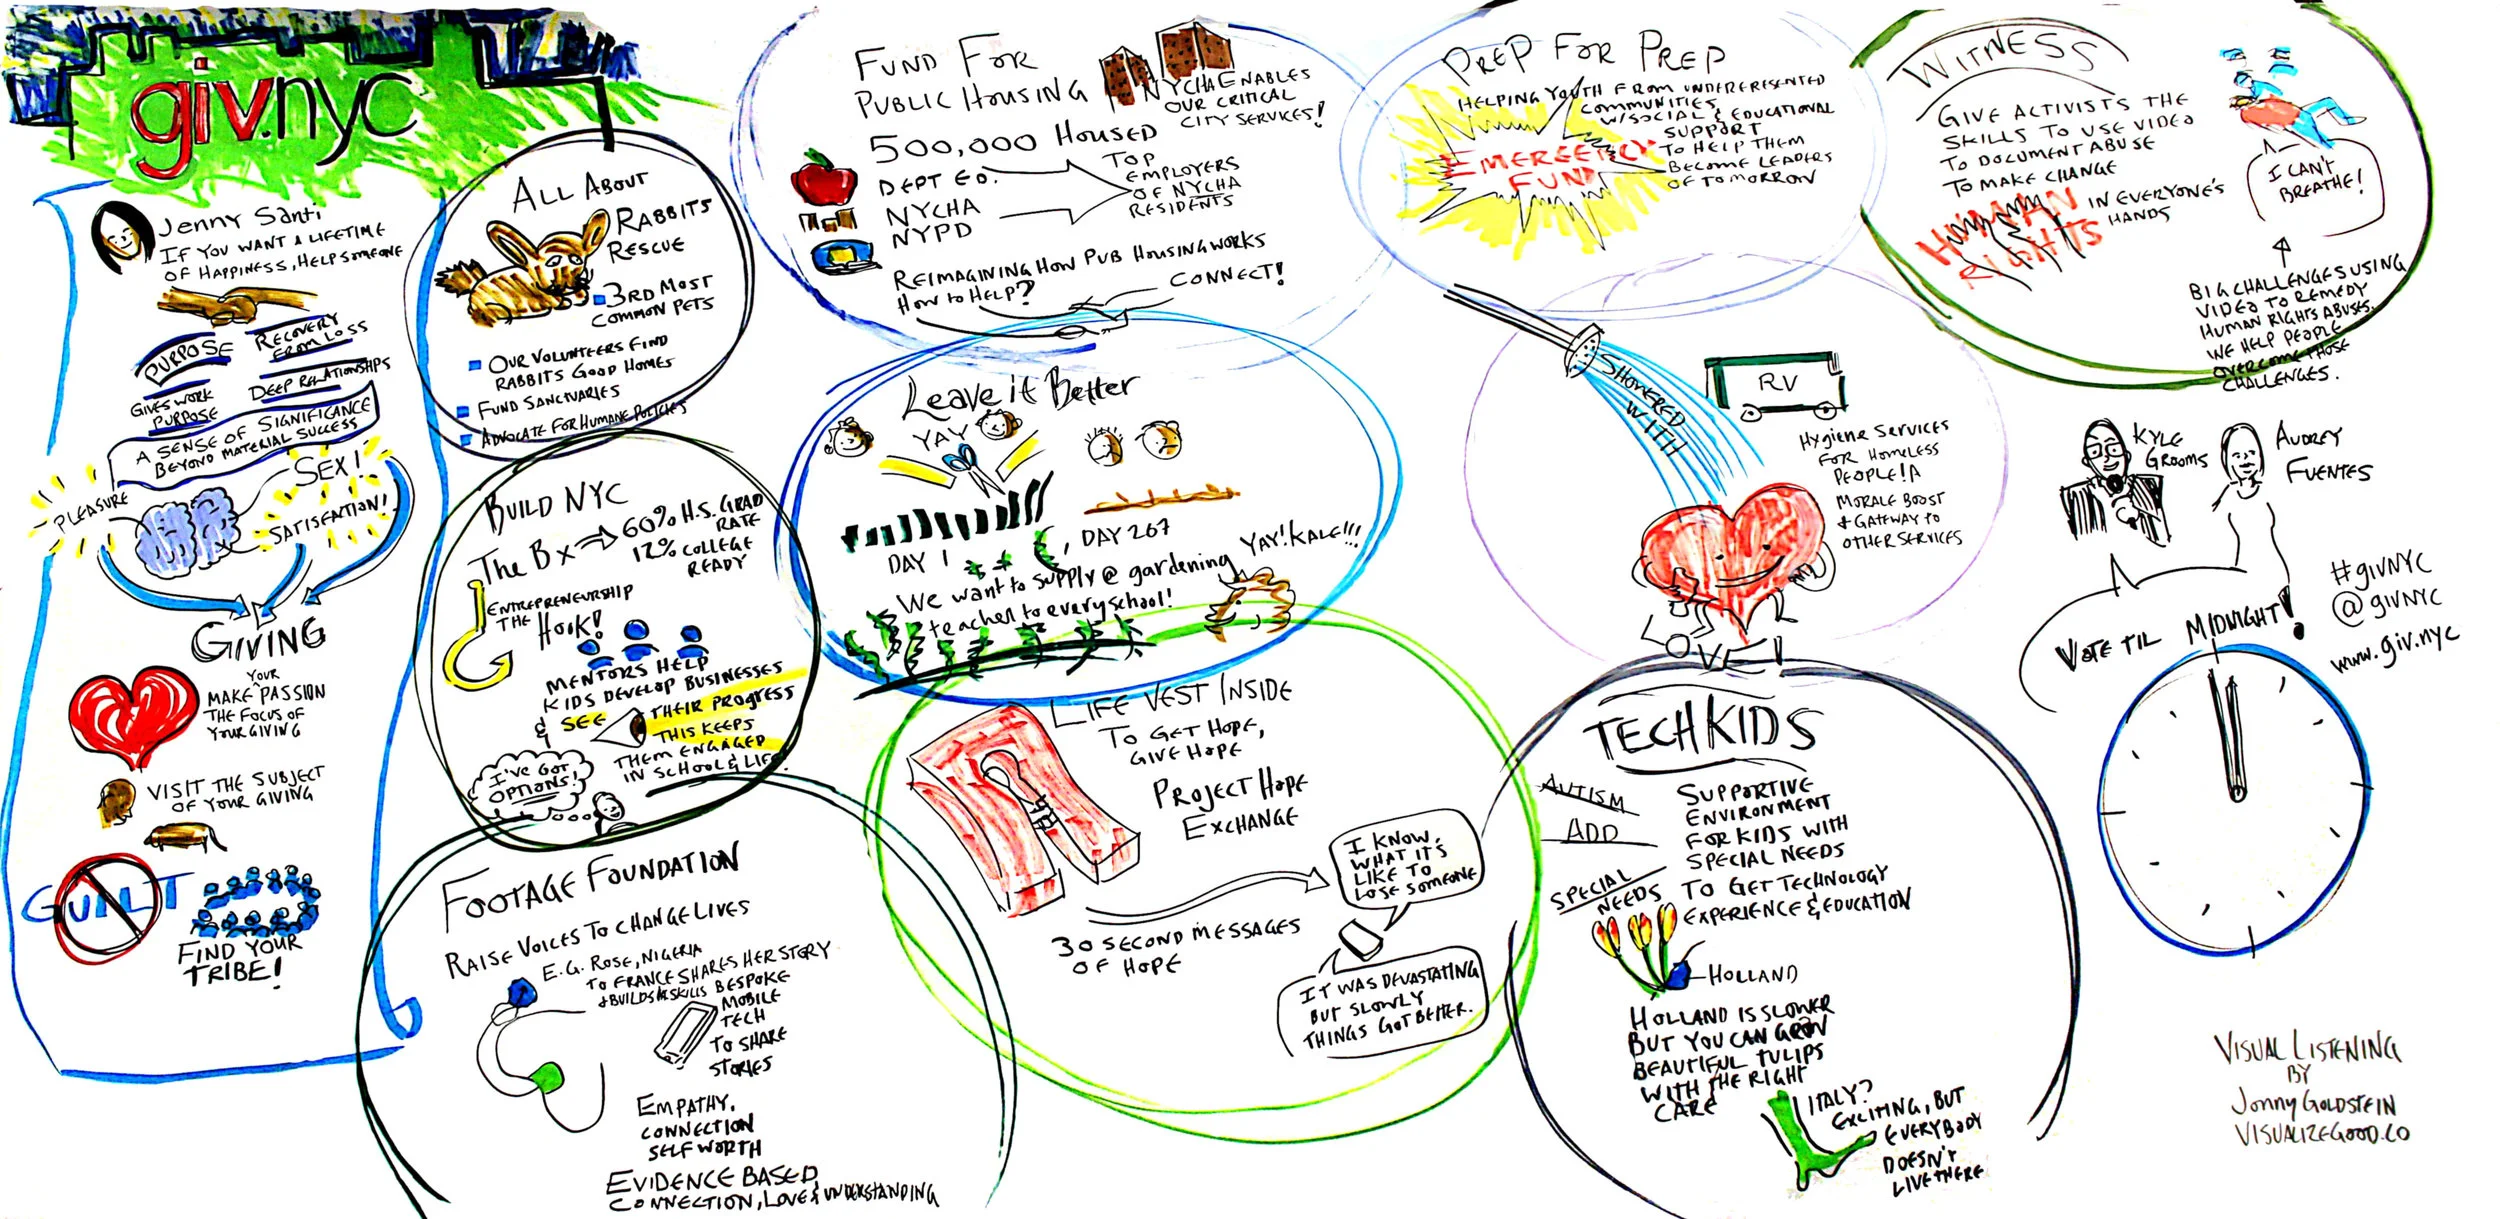 giv.nyc
Jenny Santi
IF YOU WANT A LIFETIME
OF HAPPINESS, HELP SOMEONE
PURPOSE
RECOVERY
FROM LOSS
GIVES WORK
PURPOSE
DEEP RELATIONSHIPS
A SENSE OF SIGNIFICANCE
BEYOND MATERIAL SUCCESS
PLEASURE
SEX!
SATISFACTION!
GIVING
YOUR
MAKE ^ PASSION
THE FOCUS OF
YOUR GIVING
VISIT THE SUBJECT
OF YOUR GIVING
GUILT
FIND YOUR
TRIBE!
ALL ABOUT
RABBITS
RESCUE
3RD MOST
COMMON PETS
OUR VOLUNTEERS FIND
RABBITS GOOD HOMES
FUND SANCTUARIES
ADVOCATE FOR HUMANE POLICIES
BUILD NYC
The Bx
60% H.S. GRAD
RATE
12% COLLEGE
READY
ENTREPRENEURSHIP
THE HOOK!
MENTORS HELP
KIDS DEVELOP BUSINESSES
& SEE
THEIR PROGRESS
THIS KEEPS
THEM ENGAGED
IN SCHOOL & LIFE.
I'VE GOT
OPTIONS!
FOOTAGE FOUNDATION
RAISE VOICES TO CHANGE LIVES
E.G. ROSE, NIGERIA
TO FRANCE SHARES HER STORY
& BUILDS SKILLS
BESPOKE
MOBILE
TECH
TO SHARE
STORIES
EMPATHY,
CONNECTION
SELF WORTH
EVIDENCE BASED
CONNECTION, LOVE & UNDERSTANDING
FUND FOR
PUBLIC HOUSING
NYCHA ENABLES
OUR CRITICAL
CITY SERVICES!
500,000 HOUSED
DEPT ED.
NYCHA
NYPD
TOP
EMPLOYERS
OF NYCHA
RESIDENTS
REIMAGINING HOW PUB HOUSING WORKS
HOW TO HELP?
CONNECT!
Leave it Better
YAY
DAY 1
DAY 267
We want to supply @ gardening
teacher to every school!
YAY! KALE!!!
LIFE VEST INSIDE
TO GET HOPE,
GIVE HOPE
PROJECT HOPE
EXCHANGE
30 SECOND MESSAGES
OF HOPE
I KNOW,
WHAT IT'S
LIKE TO
LOSE SOMEONE
IT WAS DEVASTATING
BUT SLOWLY
THINGS GOT BETTER.
PREP FOR PREP
HELPING YOUTH FROM UNDERERESENTED
COMMUNITIES
W/SOCIAL & EDUCATIONAL
SUPPORT
TO HELP THEM
BECOME LEADERS
OF TOMORROW
EMERGENCY
FUND
SHOWERED
WITH
LOVE!
RV
HYGIENE SERVICES
FOR HOMELESS
PEOPLE! A
MORALE BOOST
& GATEWAY TO
OTHER SERVICES
TECHKIDS
AUTISM
ADD
SPECIAL
NEEDS
SUPPORTIVE
ENVIRONMENT
FOR KIDS WITH
SPECIAL NEEDS
TO GET TECHNOLOGY
EXPERIENCE & EDUCATION
HOLLAND
HOLLAND IS SLOWER
BUT YOU CAN GROW
BEAUTIFUL TULIPS
WITH THE RIGHT
CARE
ITALY?
EXCITING, BUT
EVERYBODY
DOESN'T
LIVE THERE
WITNESS
GIVE ACTIVISTS THE
SKILLS TO USE VIDEO
TO DOCUMENT ABUSE
TO MAKE CHANGE
HUMAN
RIGHTS
IN EVERYONE'S
HANDS
I CAN'T
BREATHE!
BIG CHALLENGES USING
VIDEO TO REMEDY
HUMAN RIGHTS ABUSES.
WE HELP PEOPLE
OVERCOME THOSE
CHALLENGES.
KYLE
GROOMS
AUDREY
FUENTES
VOTE TIL MIDNIGHT!
#givNYC
@givNYC
www.giv.nyc
VISUAL LISTENING
BY
JONNY GOLDSTEIN
VISUALIZEGOOD.CO